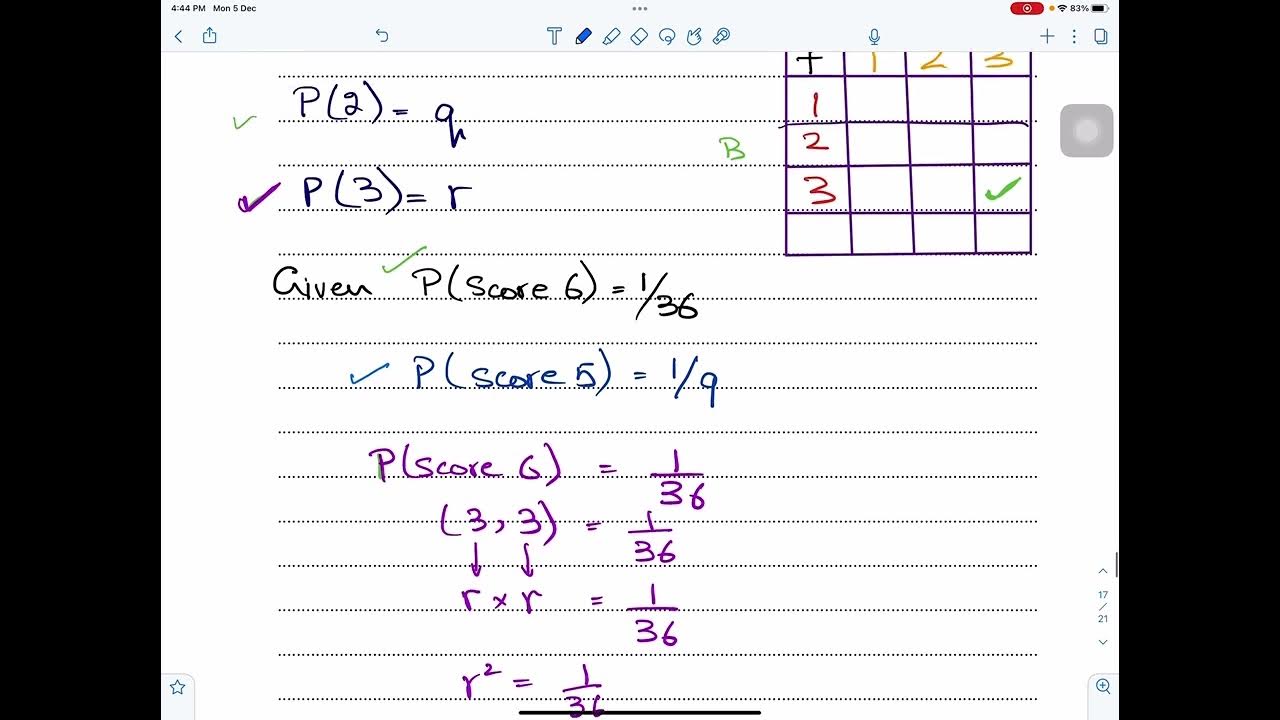 4:44 PM Mon 5 Dec
83%
+ 1 2 3
P(2) = q
1
B 2
P(3) = r
3 ✓
Given P(Score 6) = 1/36
P(Score 5) = 1/9
P(Score 6) = 1/36
(3, 3) = 1/36
↓ ↓
r × r = 1/36
r² = 1/36
17
/
21